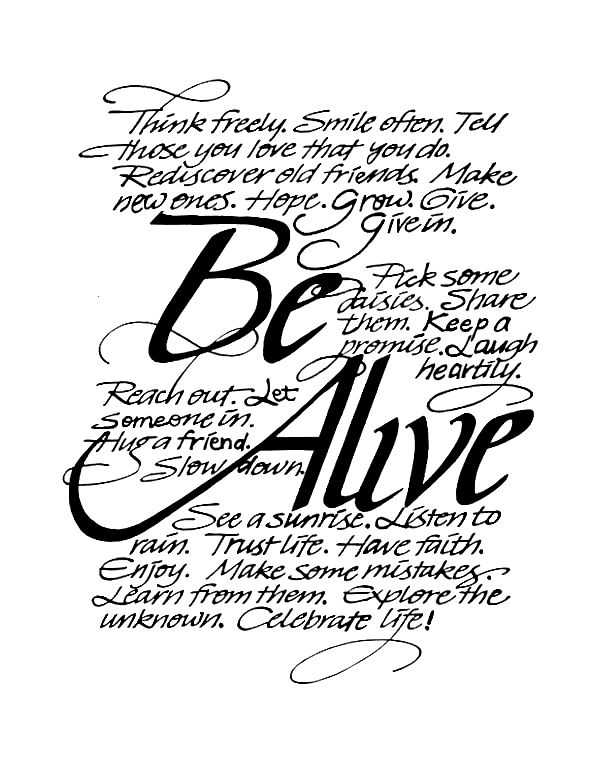 Think freely. Smile often. Tell
those you love that you do.
Rediscover old friends. Make
new ones. Hope. Grow. Give.
Give in.
Be
Pick some
daisies. Share
them. Keep a
promise. Laugh
heartily.
Reach out. Let
someone in.
Hug a friend.
Slow down.
Alive
See a sunrise. Listen to
rain. Trust life. Have faith.
Enjoy. Make some mistakes.
Learn from them. Explore the
unknown. Celebrate life!